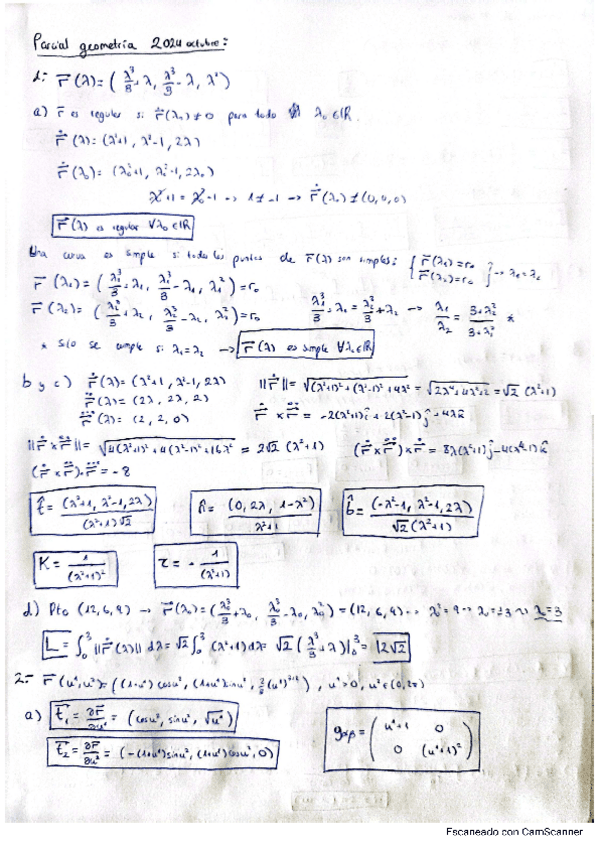 Parcial geometría 2024 octubre:
1: r⃗(λ) = (λ³/3 + λ, λ³/3 − λ, λ²)
a) r⃗ es regular si r⃗̇(λ₀) ≠ 0 para todo λ₀ ∈ ℝ.
r⃗̇(λ) = (λ²+1, λ²−1, 2λ)
r⃗̇(λ₀) = (λ₀²+1, λ₀²−1, 2λ₀)
λ²+1 = λ²−1 → 1 ≠ −1 → r⃗̇(λ₀) ≠ (0,0,0)
r⃗(λ) es regular ∀λ₀∈ℝ
Una curva es simple si todos los puntos de r⃗(λ) son simples: { r⃗(λ₁)=r₀ r⃗(λ₂)=r₀ } → λ₁=λ₂
r⃗(λ₁) = (λ₁³/3 + λ₁, λ₁³/3 − λ₁, λ₁²) = r₀
r⃗(λ₂) = (λ₂³/3 + λ₂, λ₂³/3 − λ₂, λ₂²) = r₀ λ₁³/3 + λ₁ = λ₂³/3 + λ₂ → λ₁/λ₂ = (3+λ₂²)/(3+λ₁²) *
* Sólo se cumple si λ₁=λ₂ → r⃗(λ) es simple ∀λ₀∈ℝ
b y c) r⃗̇(λ) = (λ²+1, λ²−1, 2λ) ||r⃗̇|| = √((λ²+1)²+(λ²−1)²+4λ²) = √(2λ⁴+4λ²+2) = √2 (λ²+1)
r⃗̈(λ) = (2λ, 2λ, 2) r⃗̇ × r⃗̈ = −2(λ²+1)î + 2(λ²−1)ĵ + 4λk̂
r⃗⃛(λ) = (2, 2, 0)
||r⃗̇ × r⃗̈|| = √(4(λ²+1)²+4(λ²−1)²+16λ²) = 2√2 (λ²+1) (r⃗̇ × r⃗̈) × r⃗̇ = 8λ(λ²+1)ĵ − 4(λ⁴−1)k̂
(r⃗̇ × r⃗̈)·r⃗⃛ = −8
t̂ = (λ²+1, λ²−1, 2λ)/((λ²+1)√2) n̂ = (0, 2λ, 1−λ²)/(λ²+1) b̂ = (−λ²−1, λ²−1, 2λ)/(√2(λ²+1))
K = 1/(λ²+1)² τ = − 1/(λ²+1)
d) Pto (12,6,9) → r⃗(λ₀) = (λ₀³/3 + λ₀, λ₀³/3 − λ₀, λ₀²) = (12,6,9) → λ₀² = 9 → λ₀ = ±3 → λ = 3
L = ∫₀³ ||r⃗̇(λ)|| dλ = √2 ∫₀³ (λ²+1)dλ = √2 (λ³/3 + λ)|₀³ = 12√2
2.- r⃗(u¹,u²) = ((1+u¹)cosu², (1+u¹)sinu², 2/3(u¹)^(3/2)), u¹>0, u²∈(0,2π)
a) t⃗₁ = ∂r⃗/∂u¹ = (cosu², sinu², √u¹) g_αβ = ( u¹+1 0
t⃗₂ = ∂r⃗/∂u² = (−(1+u¹)sinu², (1+u¹)cosu², 0) 0 (u¹+1)² )
Escaneado con CamScanner